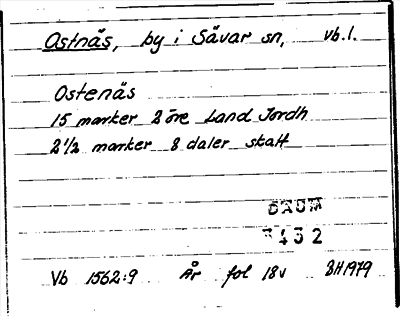 Ostnäs, by i Sävar sn, vb.l.
Ostenäs
15 marker 2 öre Land Jordh
2 1/2 marker 8 daler skatt
DAUM
3432
Vb 1562:9 År fol 18v BH1979